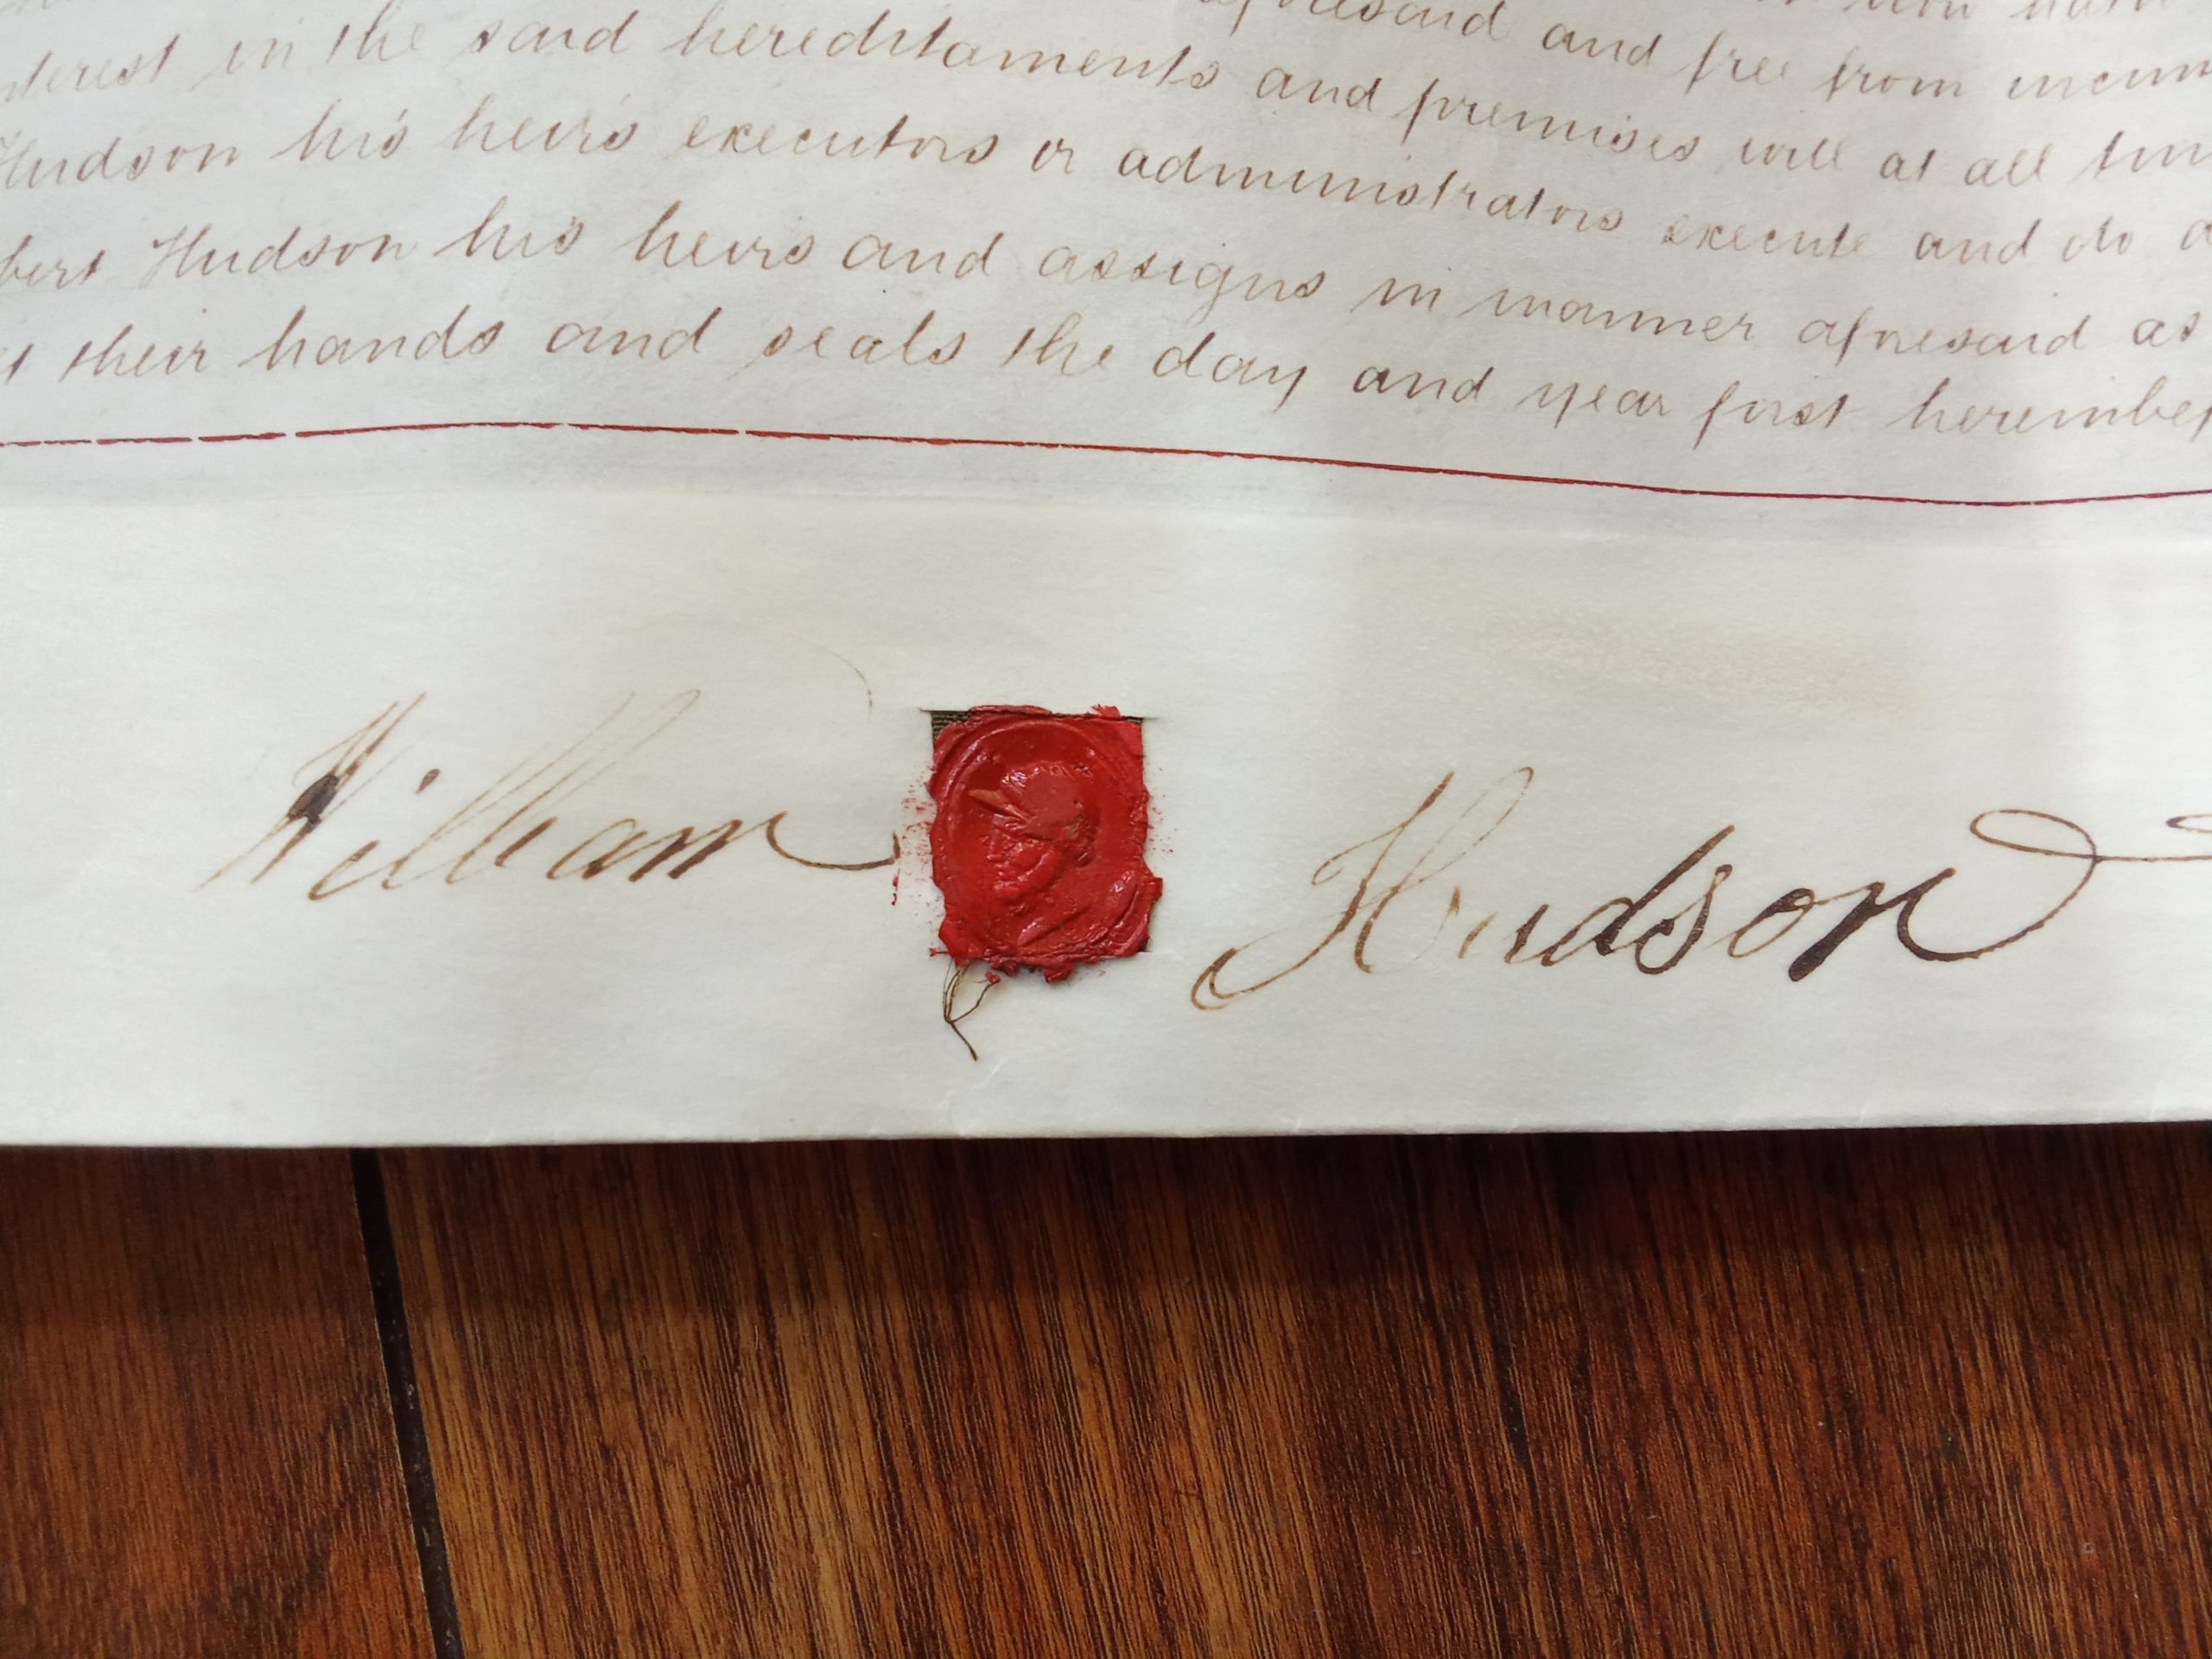 aforesaid
interest in the said hereditaments and free from incum
Hudson his heirs executors or administrators and premises will at all tim
bert Hudson his heirs and assigns in manner aforesaid execute and do a
t their hands and seals the day and year first hereinbef as
William Hudson